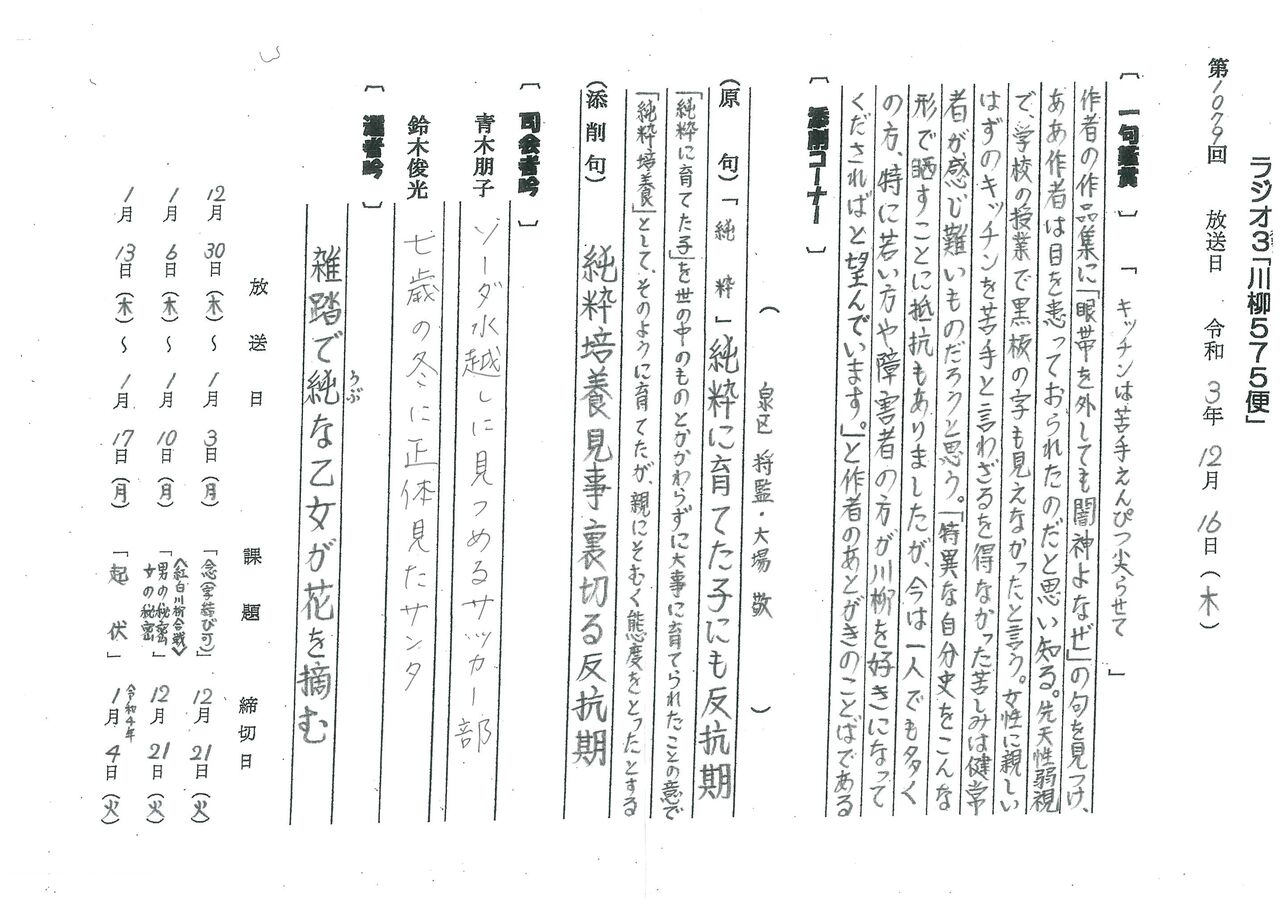 ラジオ3「川柳575便」
第1079回 放送日 令和3年12月16日(木)
〔一句鑑賞〕「キッチンは苦手えんぴつ尖らせて」
作者の作品集に「眼帯を外しても闇神よなぜ」の句を見つけ、
ああ作者は目を患っておられたのだと思い知る。先天性弱視
で、学校の授業で黒板の字も見えなかったと言う。女性に親しい
はずのキッチンを苦手と言わざるを得なかった苦しみは健常
者が感じ難いものだろうと思う。「特異な自分史をこんな
形で晒すことに抵抗もありましたが、今は一人でも多く
の方、特に若い方や障害者の方が川柳を好きになって
くださればと望んでいます。」と作者のあとがきのことばである
〔添削コーナー〕
(泉区 将監・大場 敬)
(原句)「純粋」純粋に育てた子にも反抗期
「純粋に育てた子」を世の中のものとかかわらずに大事に育てられたことの意で
「純粋培養」として、そのように育てたが、親にそむく態度をとったとする
(添削句)純粋培養見事裏切る反抗期
〔司会者吟〕
青木朋子 ソーダ水越しに見つめるサッカー部
鈴木俊光 七歳の冬に正体見たサンタ
〔選者吟〕
雑踏で純な乙女が花を摘む
うぶ
放送日 課題 締切日
12月30日(木)～1月3日(月)「念(字結び可)」12月21日(火)
1月6日(木)～1月10日(月)〈紅白川柳合戦〉「男の秘密」女の秘密 12月21日(火)
1月13日(木)～1月17日(月)「起伏」令和4年1月4日(火)